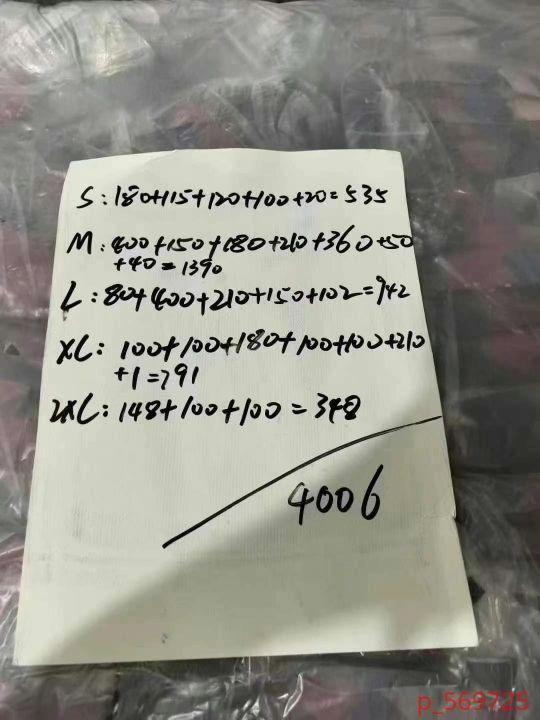 S:180+115+120+100+20=535
M:400+150+180+210+360+50
+40=1390
L:80+400+210+150+102=942
XL:100+100+180+100+100+210
+1=791
2XL:148+100+100=348
4006
p_569725